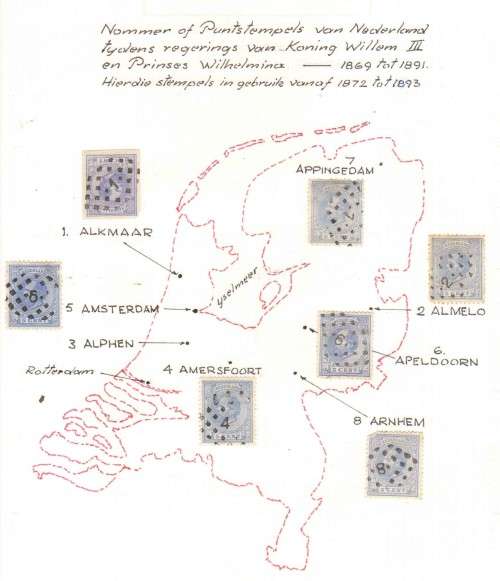 Nommer of Puntstempels van Nederland
tydens regerings van Koning Willem III
en Prinses Wilhelmina — 1869 tot 1891.
Hierdie stempels in gebruik vanaf 1872 tot 1893
7
APPINGEDAM
1
7
1. ALKMAAR
Yselmeer
2
6
5 AMSTERDAM
2 ALMELO
6
3 ALPHEN
6.
APELDOORN
5 CENT
4 AMERSFOORT
Rotterdam
4
8 ARNHEM
8